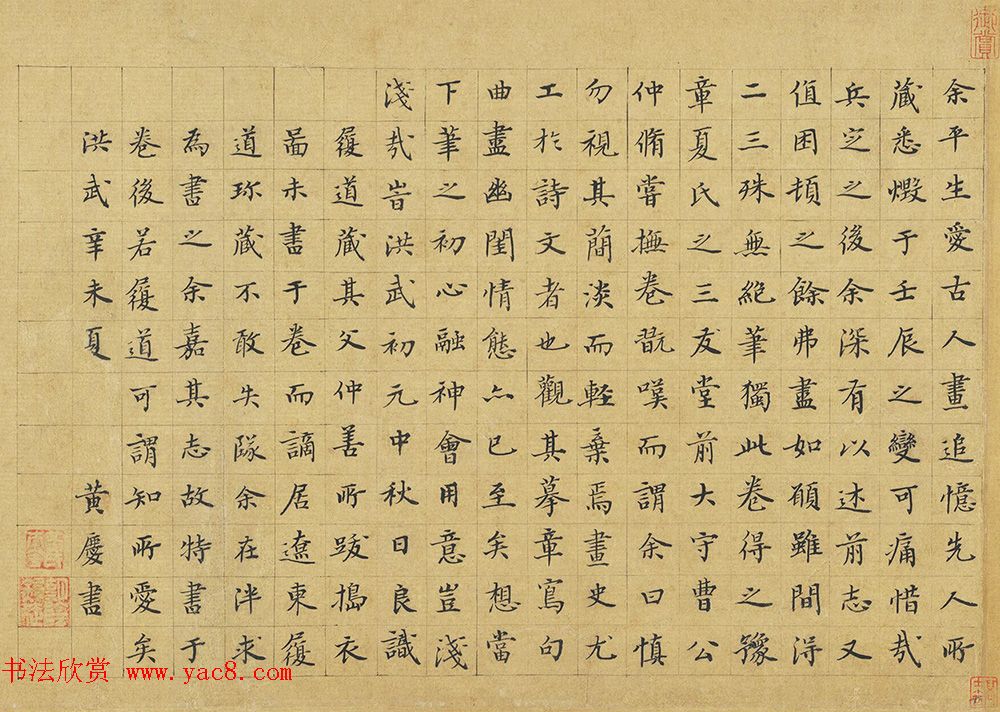 御賞
余平生愛古人畫追憶先人所
蔵悉燬于壬辰之變可痛惜㢤
兵定之後余深有以述前志又
值困頓之餘弗盡如願雖間得
二三殊無絶筆獨此卷得之豫
章夏氏之三友堂前大守曹公
仲脩嘗撫卷翫嘆而謂余曰慎
勿視其蕳淡而輕棄焉畫史尤
工於詩文者也觀其摹章寫句
曲盡幽閨情態亦已至矣想當
下筆之初心融神會用意豈淺
淺㢤旹洪武初元中秋日良識
履道蔵其父仲善所跋搗衣
啚未書于卷而謫居遼東履
道珎蔵不敢失隊余在泮求
為書之余嘉其志故特書于
卷後若履道可謂知所愛矣
洪武辛未夏 黄慶書
书法欣赏 www.yac8.com